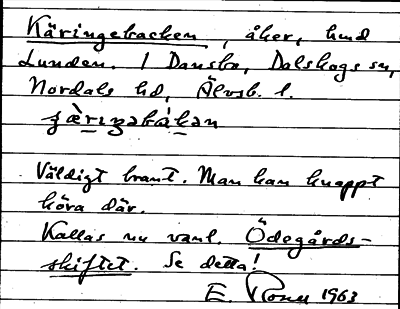 Käringebacken, åker, hmd
Lunden. I Dansbo, Dalskogs sn,
Nordals hd, Älvsb. l.
Väldigt brant. Man kan knappt
köra där.
Kallas nu vanl. Ödegårds-
skiftet. Se detta!
E. 1963